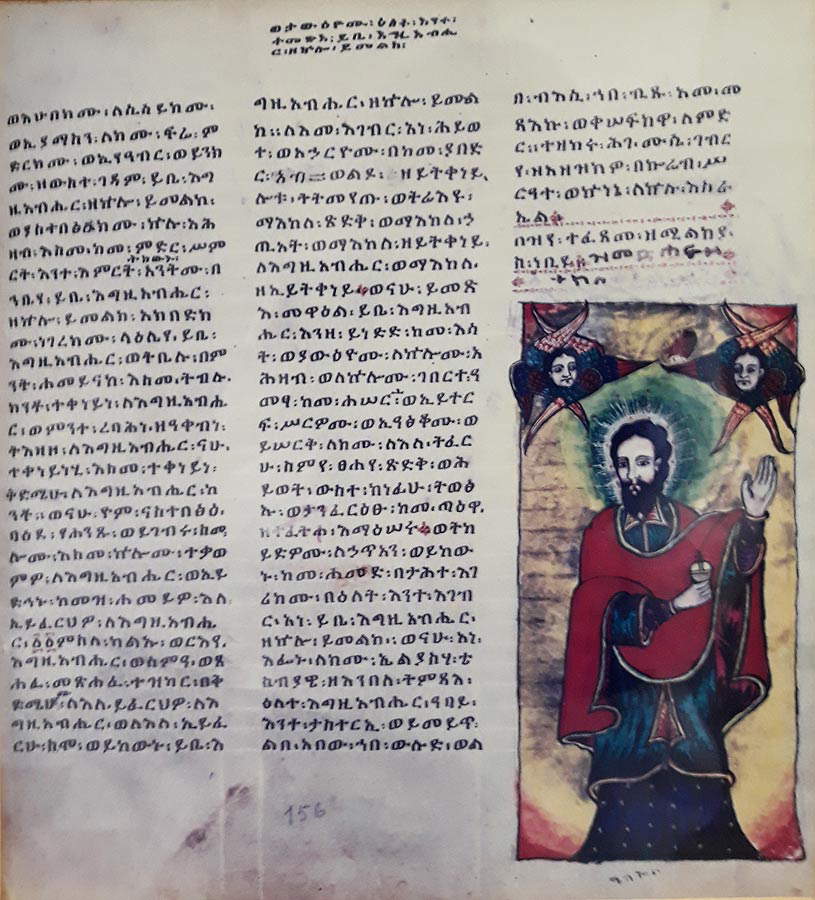 ወታውዕዮሙ፡ ዕለት፡ እንተ፡
ተመጽእ፡ ይቤ፡ እግዚአብሔ
ር፡ ዘኵሉ፡ ይመልክ፡
ለሲሳይክሙ፡
ወኢያማስን፡ ለክሙ፡ ፍሬ፡ ም
ድርክሙ፡ ወኢየዓብር፡ ወይንክ
ሙ፡ ዘውስተ፡ ገዳም፡ ይቤ፡ እግ
ዚአብሔር፡ ዘኵሉ፡ ይመልክ፡
ወያስተበፅዑክሙ፡ ኵሉ፡ አሕ
ዛብ፡ እስመ፡ ከመ፡ ምድር፡ ሥም
ርት፡ እንተ፡ አንትሙ፡ በ
ትከውኑ፡
ኀቤየ፡ ይቤ፡ እግዚአብሔር፡
ዘኵሉ፡ ይመልክ፡ አክበድክ
ሙ፡ ነገረክሙ፡ ላዕሌየ፡ ይቤ፡
እግዚአብሔር፡ ወትቤሉ፡ በም
ንት፡ ሐመይናከ፡ እስመ፡ ትብሉ፡
ከንቶ፡ ተቀነይነ፡ ለእግዚአብሔ
ር፡ ወምንተ፡ ረባሕነ፡ ዘዓቀብነ፡
ትእዛዘ፡ ለእግዚአብሔር፡ ናሁ፡
ተቀነይነሂ፡ እስመ፡ ተቀነይነ፡
ቅድሜሁ፡ ለእግዚአብሔር፡ ከ
ንቶ። ወናሁ፡ ዮም፡ ናስተበፅዕ፡
ባዕደ፡ የሐንጹ፡ ወይገብሩ፡ ከመ፡
ሎሙ፡ እስመ፡ ኵሎሙ፡ ተቃወ
ምዎ፡ ለእግዚአብሔር፡ ወኢይ
ድኅኑ፡ ከመዝ፡ ሐመይዎ፡ እለ
ኢይፈርህዎ፡ ለእግዚአብሔ
ር፡ ፩፩ምስለ፡ ካልኡ፡ ወርእየ፡
እግዚአብሔር፡ ወሰምዓ፡ ወጸ
ሐፈ፡ መጽሐፈ፡ ተዝካር፡ በቅ
ድሜሁ፡ ለእለ፡ ይፈርህዎ፡ ለእ
ግዚአብሔር፡ ወለእለ፡ ኢይፈ
ርሁ፡ ስሞ፡ ወይከውኑ፡ ይቤ፡ እ
ግዚአብሔር፡ ዘኵሉ፡ ይመል
ክ። ለአመ፡ እገብር፡ አነ፡ ሕይወ
ተ፡ ወአኃርዮሙ፡ በከመ፡ ያበድ
ር፡ አብ፡ ወልዶ፡ ዘይትቀነይ፡
ሎቱ፡ ትትመየጡ፡ ወትሬእዩ፡
ማእከለ፡ ጻድቅ፡ ወማእከለ፡ ኃ
ጢአት፡ ወማእከለ፡ ዘይትቀነይ፡
ለእግዚአብሔር፡ ወማእከለ፡
ዘኢይትቀነይ። ወናሁ፡ ይመጽ
እ፡ መዋዕል፡ ይቤ፡ እግዚአብ
ሔር፡ እንዘ፡ ይነድድ፡ ከመ፡ እሳ
ት፡ ወያውዕዮሙ፡ ለኵሎሙ፡ አ
ሕዛብ፡ ወለኵሎሙ፡ ገበርተ፡ ዓ
መፃ፡ ከመ፡ ሐሠር፡ ወኢይተር
ፍ፡ ሥርዎሙ፡ ወኢዓፅቆሙ፡ ወ
ይሠርቅ፡ ለክሙ፡ ለእለ፡ ትፈር
ሁ፡ ስምየ፡ ፀሐየ፡ ጽድቅ፡ ወሕ
ይወት፡ ውስተ፡ ክነፊሁ፡ ትወፅ
ኡ፡ ወታንፈርዕፁ፡ ከመ፡ ጣዕዋ፡
ዘተፈትሐ፡ እማዕሠሩ። ወትከ
ይድዎሙ፡ ለኃጥአን፡ ወይከው
ኑ፡ ከመ፡ ሐመድ፡ በታሕተ፡ እገ
ሪክሙ፡ በዕለት፡ እንተ፡ እገብ
ር፡ አነ፡ ይቤ፡ እግዚአብሔር፡
ዘኵሉ፡ ይመልክ፡ ወናሁ፡ አነ፡
እፌኑ፡ ለክሙ፡ ኤልያስሃ፡ ቴ
ስብያዊ፡ ዘእንበለ፡ ትምጻእ፡
ዕለተ፡ እግዚአብሔር፡ ዓባይ፡
እንተ፡ ታስተርኢ፡ ወይመይጥ፡
ልበ፡ አበው፡ ኀበ፡ ውሉድ፡ ወል
በ፡ ብእሲ፡ ኀበ፡ ቢጹ፡ አመ፡ መ
ጻእኩ፡ ወቀሠፍክዋ፡ ለምድ
ር። ተዘከሩ፡ ሕገ፡ ሙሴ፡ ገብር
የ፡ ዘአዘዝክዎ፡ በኮሬብ፡ ሥ
ርዓተ፡ ወኵነኔ፡ ለኵሉ፡ እስራ
ኤል።
በዝየ፡ ተፈጸመ፡ ዘሚልክያ
ስ፡ ነቢይ፡
156